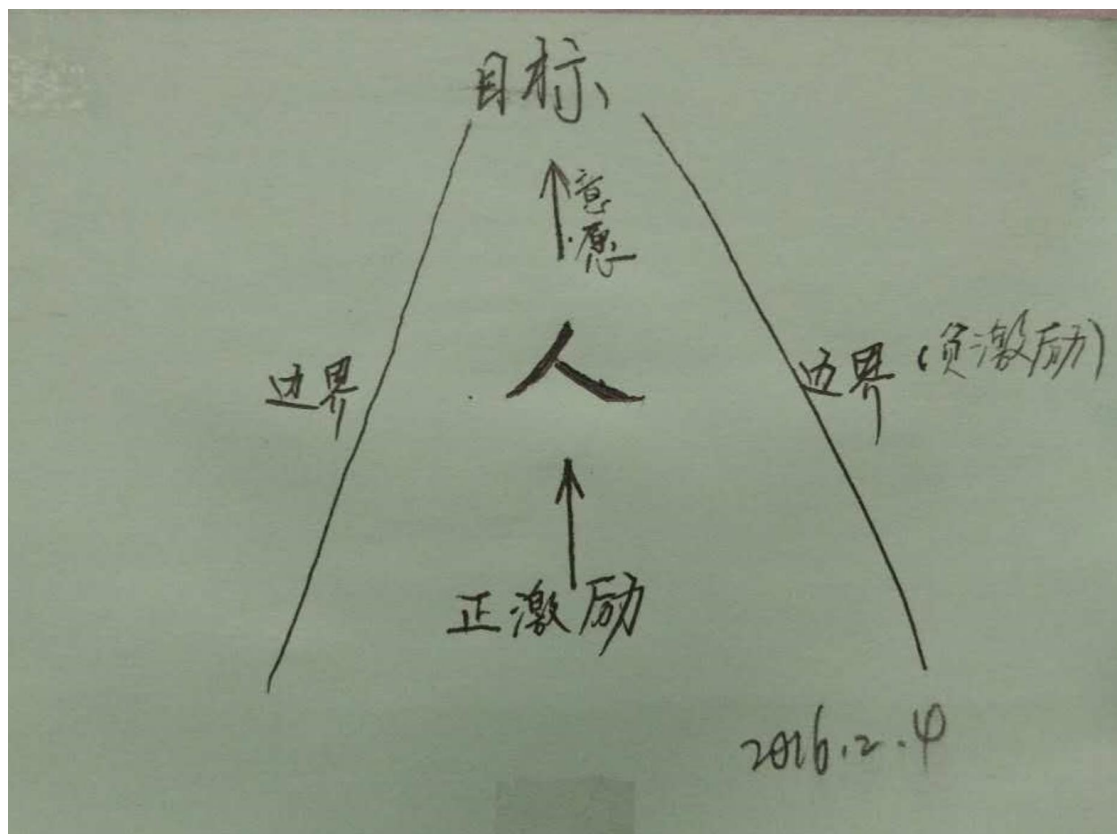 目标
意愿
人
边界
边界(负激励)
正激励
2016.2.4